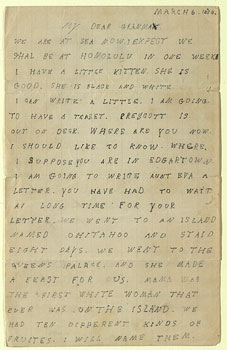 MARCH 6.
MY DEAR GRANMA
WE ARE AT SEA NOW, EXPECT WE
SHAL BE AT HONOLULU IN ONE WEEK
I HAVE A LITTLE KITTEN. SHE IS
GOOD. SHE IS BLACK AND WHITE
I CAN WRITE A LITTLE. I AM GOING
TO HAVE A TEASET. PRESCOTT IS
OUT ON DECK. WHERE ARE YOU NOW.
I SHOULD LIKE TO KNOW. WHERE.
I SUPPOSE YOU ARE IN EDGARTOWN
I AM GOING TO WRITE AUNT EFA A
LETTER. YOU HAVE HAD TO WAIT
A LONG TIME FOR YOUR
LETTER. WE WENT TO AN ISLAND
NAMED OHITAHOO AND STAID
EIGHT DAYS. WE WENT TO THE
QUEENS PALACE. AND SHE MADE
A FEAST FOR US. MAMA WAS
THE FIRST WHITE WOMAN THAT
EVER WAS ON THE ISLAND. WE
HAD TEN DIFFERENT KINDS OF
FRUITES. I WILL NAME THEM.